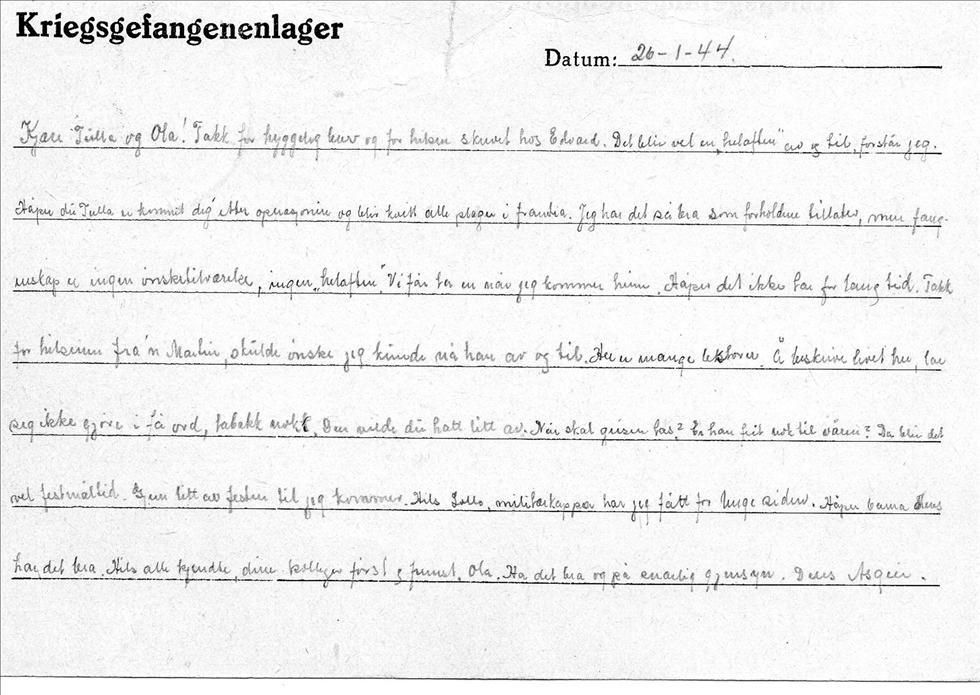 Kriegsgefangenenlager
Datum: 26-1-44.
Kjære Tulla og Ola! Takk for hyggelig brev og for hilsen skrevet hos Edvard. Det blir vel en „helaften" av og til, forstår jeg.
Håper du Tulla er kommet dig etter operasjonen og blir kvitt alle plager i framtia. Jeg har det så bra som forholdene tillater, men fang-
enskap er ingen ønsketilværelse, ingen „helaften". Vi får ta en når jeg kommer heim. Håper det ikke tar for lang tid. Takk
for hilsenen fra'n Martin, skulde ønske jeg kunde nå han av og til. Her er mange lektorer. Å beskrive livet her, lar
seg ikke gjøre i få ord, tabakk nokk. Den vilde du hatt litt av. Når skal grisen tas? Er han feit nok til våren? Da blir det
vel festmåltid. Gjem litt av festen til jeg kommer. Hils militærkappa har jeg fått for lenge siden. Håper barna Deres
har det bra. Hils alle kjendte, dine kolleger først og fremst, Ola. Ha det bra og på snarlig gjensyn. Deres Asgeir.